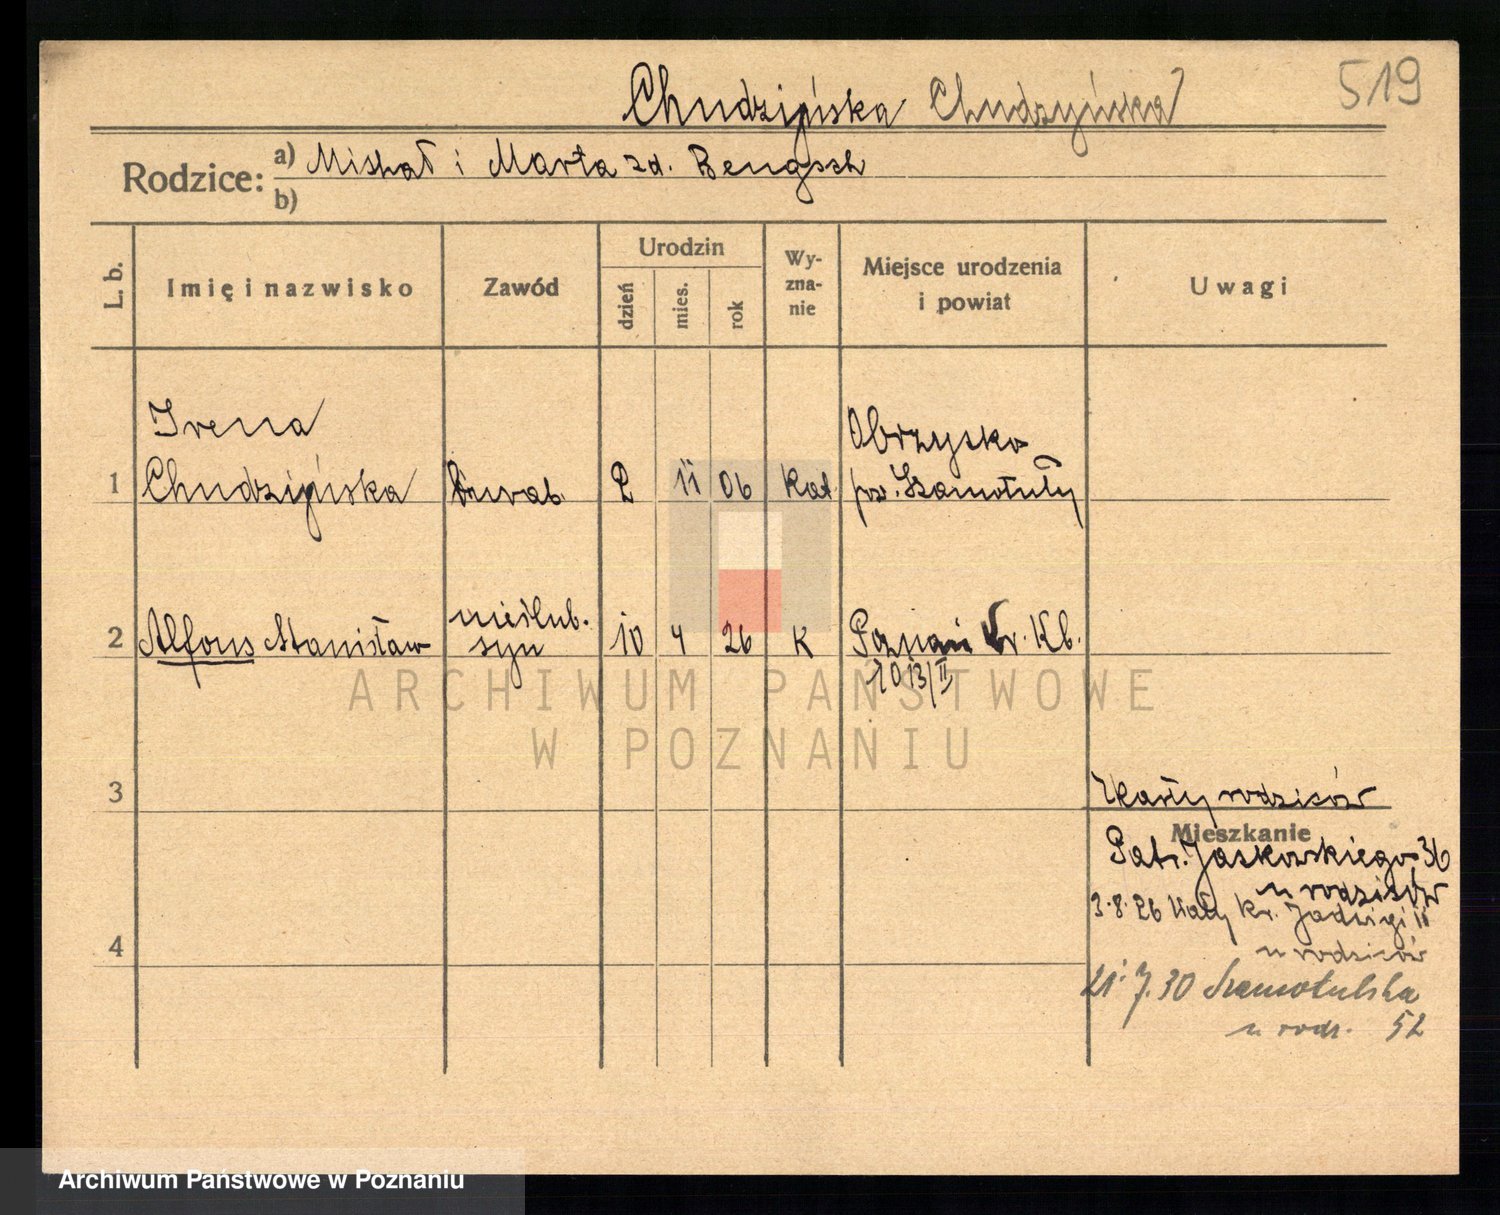 519
Chudzińska Chudzyńska
Rodzice: a) Michał i Marta zd. Bengsch
b)
L. b. Imię i nazwisko Zawód Urodzin dzień mies. rok Wyzna-nie Miejsce urodzenia i powiat Uwagi
Irena Obrzysko
1 Chudzińska 2 11 06 Kat pow. Szamotuły
nieślub.
2 Alfons Stanisław syn 10 4 26 K Poznań Kb.
1013/II
3
rodziców
Mieszkanie
Patr. Jaskowskiego 36
u rodziców
3.8.26 Wały Kr. Jadwigi 11
u rodziców
4
21.7.30 Szamotulska
u rodz. 52
ARCHIWUM PAŃSTWOWE
W POZNANIU
Archiwum Państwowe w Poznaniu